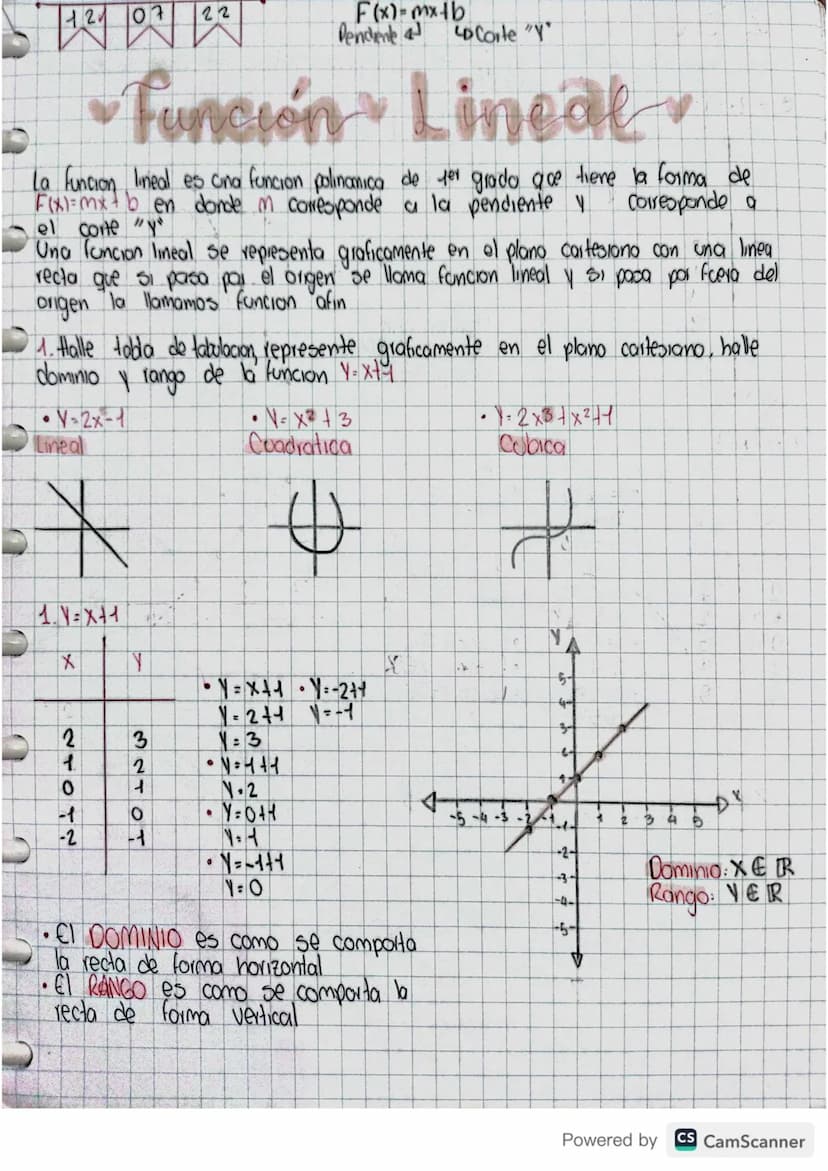 12 07 22
F(x)=mx+b
Pendiente Corte "Y"
Función Lineal
La funcion lineal es una funcion polinomica de 1er grado que tiene la forma de
F(x)=mx+b en donde m corresponde a la pendiente y corresponde a
el corte "y"
Una funcion lineal se representa graficamente en el plano cartesiano con una linea
recta que si pasa por el origen se llama funcion lineal y si pasa por fuera del
origen la llamamos funcion afin
1. Halle tabla de tabulacion, represente graficamente en el plano cartesiano, halle
dominio y rango de la funcion Y=x+1
• Y=2x-1 • Y= x² + 3 • Y=2x3+x²+1
Lineal Cuadratica Cubica
1. Y=x+1
X Y
2 3
1 2
0 1
-1 0
-2 -1
• Y=x+1 • Y=-2+1
Y=2+1 Y=-1
Y=3
• Y=1+1
Y=2
• Y=0+1
Y=1
• Y=-1+1
Y=0
Y
5
4
3
2
1
-5 -4 -3 -2 -1 1 2 3 4 5 X
-1
-2
-3
-4
-5
Dominio: X ∈ ℝ
Rango: Y ∈ ℝ
• El DOMINIO es como se comporta
la recta de forma horizontal
• El RANGO es como se comporta la
recta de forma vertical
Powered by CS CamScanner